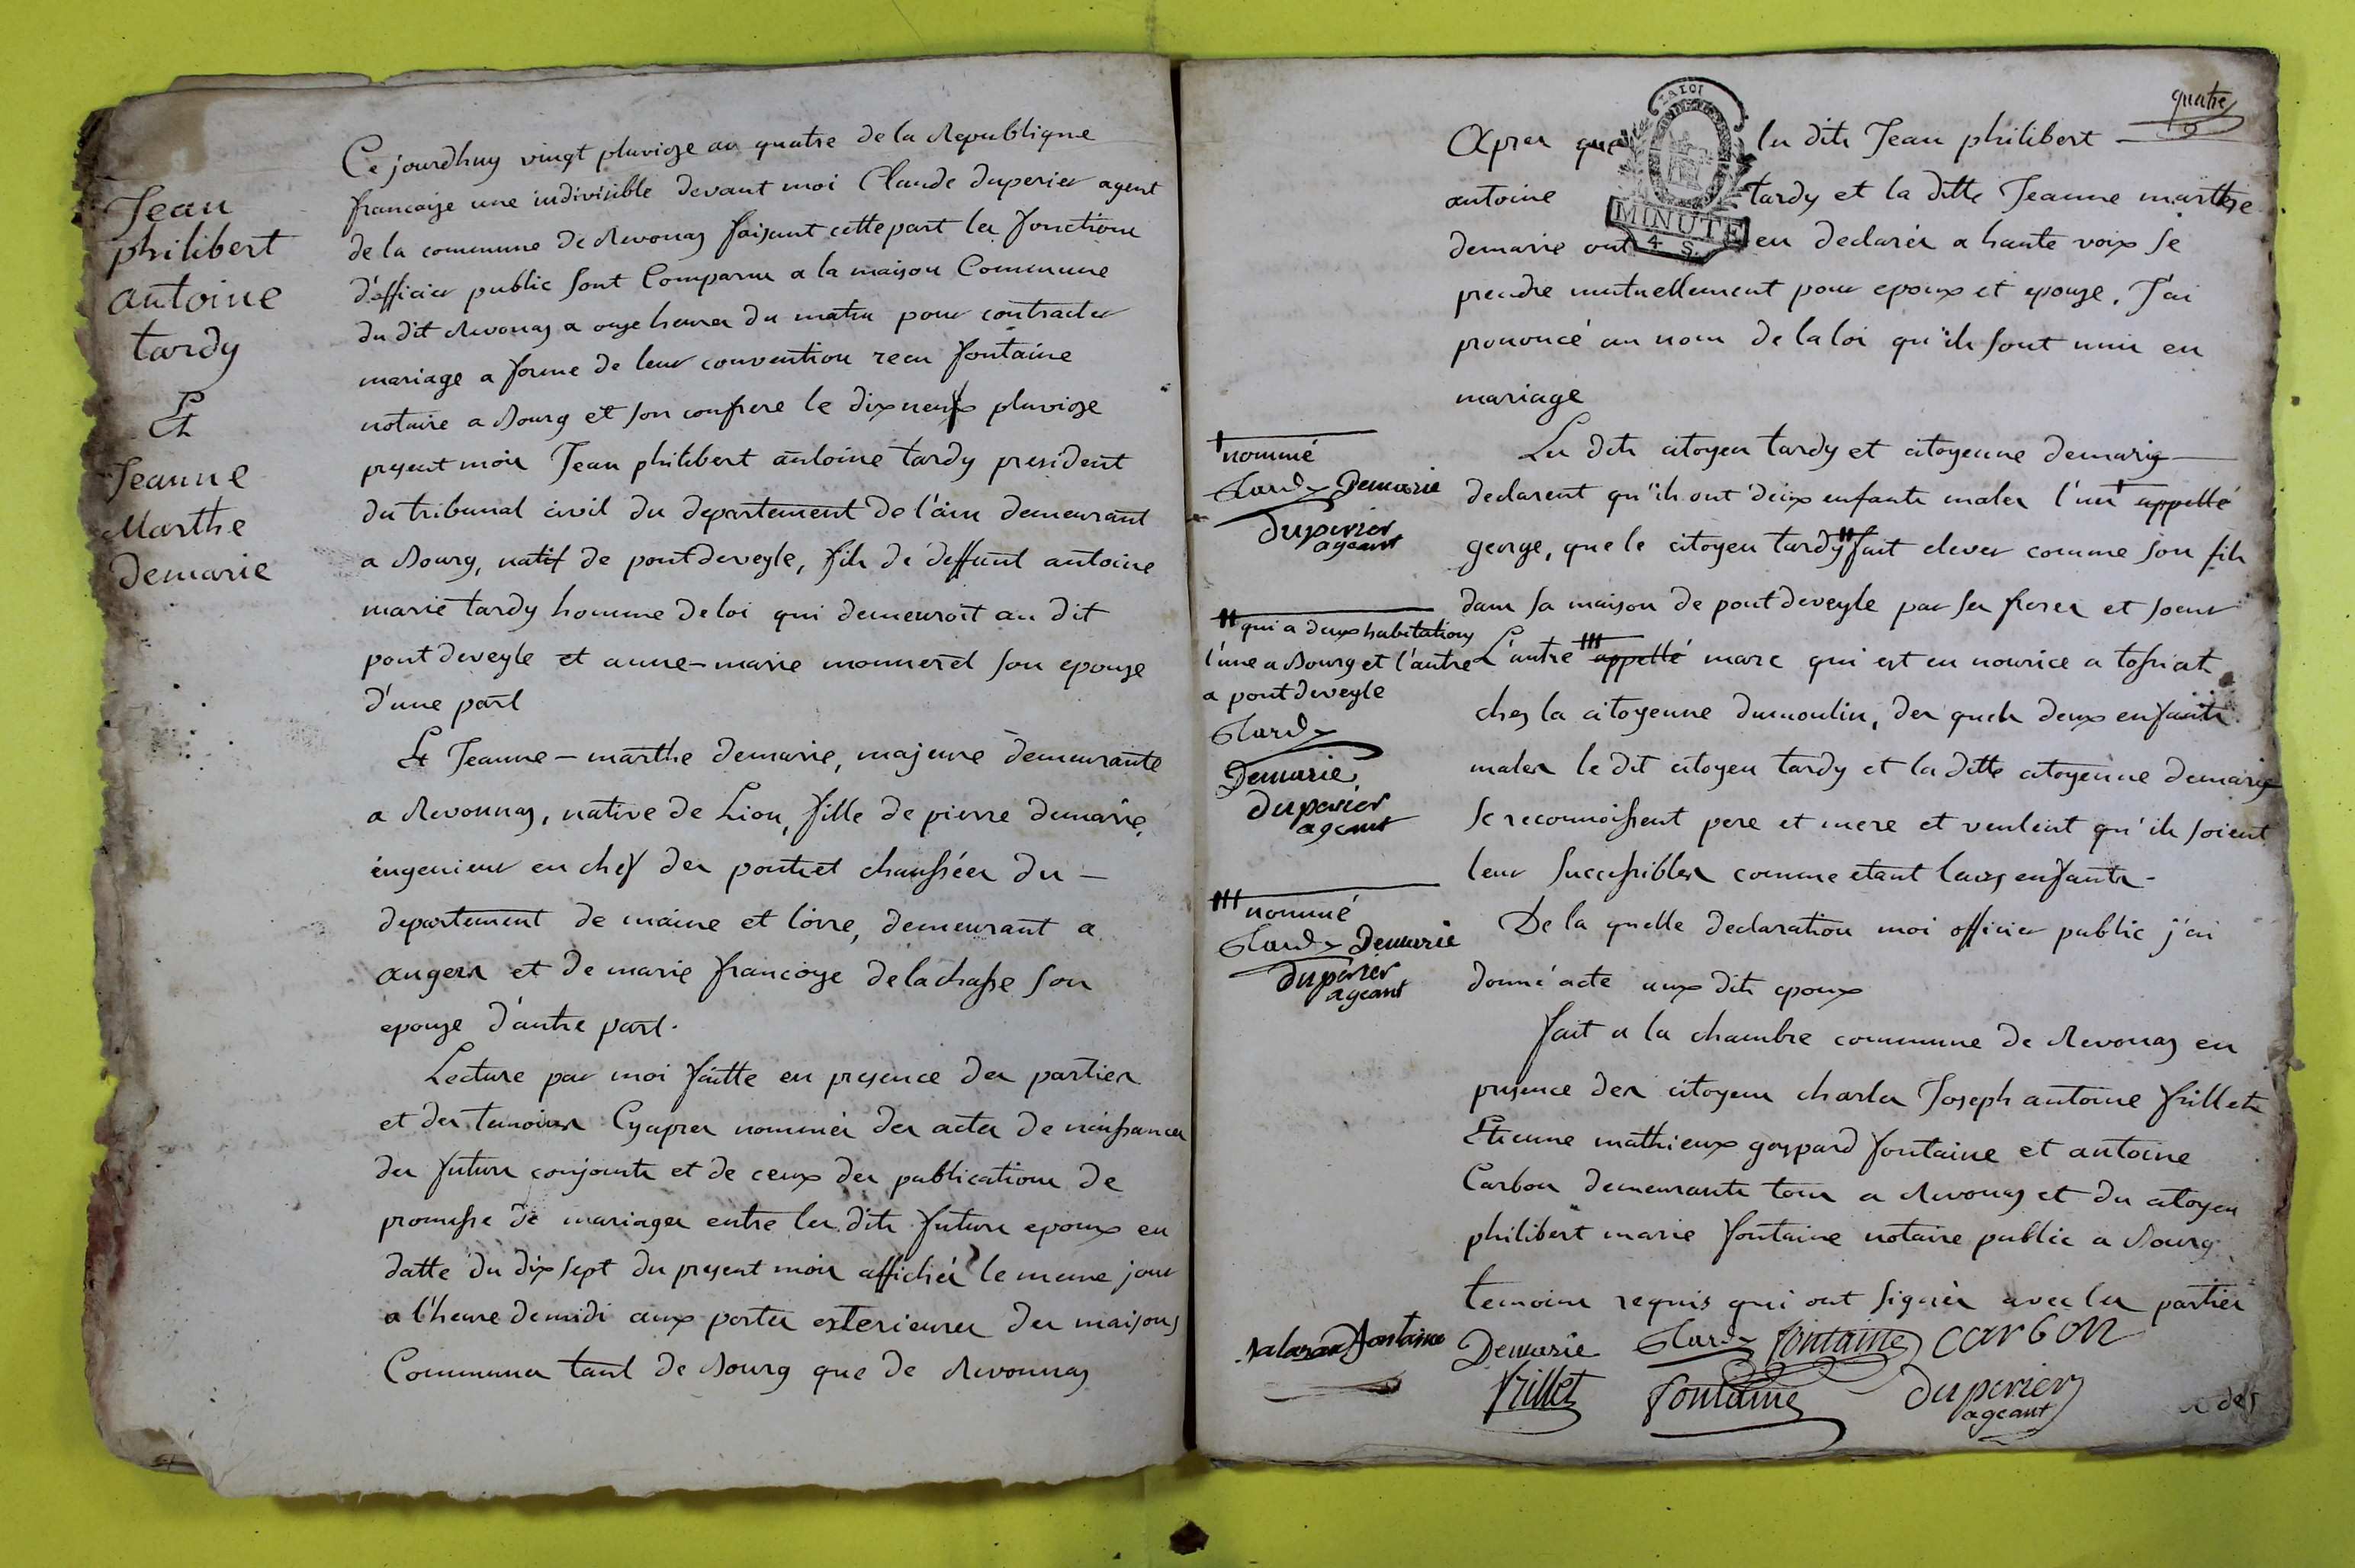 Jean
philibert
antoine
tardy
Et
Jeanne
Marthe
Demarie
Ce jourdhuy vingt pluvioze an quatre de la Republique
francaize une indivisible devant moi Claude duperier agent
de la commune de Revonas faisant cette part les fonctions
d'officier public sont Comparus a la maison Commune
du dit Revonas a onze heures du matin pour contracter
mariage a forme de leur convention recu fontaine
notaire a Bourg et son confrere le dix neuf pluvioze
present mois Jean philibert antoine tardy president
du tribunal civil du departement de l'ain demeurant
a Bourg, natif de pontdeveyle, fils de deffunt antoine
marie tardy homme de loi qui demeuroit au dit
pontdeveyle et anne-marie monneret son epouze
d'une part
Et Jeanne-marthe demarie, majeure demeurante
a Revonnas, native de Lion, fille de pierre demarie,
engenieur en chef des ponts et chaussées du -
departement de maine et loire, demeurant a
angers et de marie francoize delachasse son
epouze d'autre part.
Lecture par moi faitte en presence des parties
et des temoins Cyapres nommés des actes de naissances
des futurs conjoints et de ceux des publications de
promesse de mariages entre les dits futurs epoux en
datte du dix sept du present mois affichés le meme jour
a l'heure de midi aux portes exterieures des maisons
Communes tant de Bourg que de Revonnas
quatre
LA LOI
MINUTE
4. S.
Apres que les dits Jean philibert -
antoine tardy et la ditte Jeanne marthe
demarie ont eu declarés a haute voix se
prendre mutuellement pour epoux et epouze. J'ai
prononcé au nom de la loi qu'ils sont unis en
mariage
Les dits citoyen tardy et citoyenne demarie
declarent qu'ils ont deux enfants males l'un appellé
george, que le citoyen tardy fait elever comme son fils
dans sa maison de pontdeveyle par ses freres et soeurs
L'autre appellé marc qui est en nourice a tossiat
chez la citoyenne dumoulin, des quels deux enfants
males le dit citoyen tardy et la ditte citoyenne demarie
se reconnoissent pere et mere et veulent qu'ils soient
leur successibles comme etant leurs enfants-
De la quelle declaration moi officier public j'ai
donné acte aux dits epoux
fait a la chambre commune de Revonas en
presence des citoyens charles Joseph antoine frillets
Etienne mathieux gaspard fontaine et antoine
Carbon demeurants tous a Revonas et du citoyen
philibert marie fontaine notaire public a Bourg
temoins requis qui ont signés avec les parties
nommé
Tardy Demarie
duperier
ageant
qui a deux habitations
l'une a Bourg et l'autre
a pontdeveyle
Tardy
Demarie
duperier
ageant
nommé
Tardy Demarie
duperier
ageant
fontaine Demarie Tardy fontaine CARBON
frillet fontaine duperier
ageant